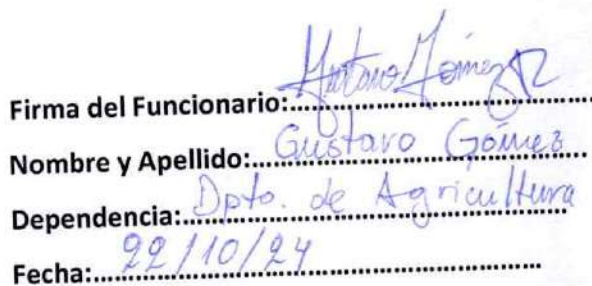 Firma del Funcionario: Gustavo Gómez
Nombre y Apellido: Gustavo Gómez
Dependencia: Dpto. de Agricultura
Fecha: 22/10/24